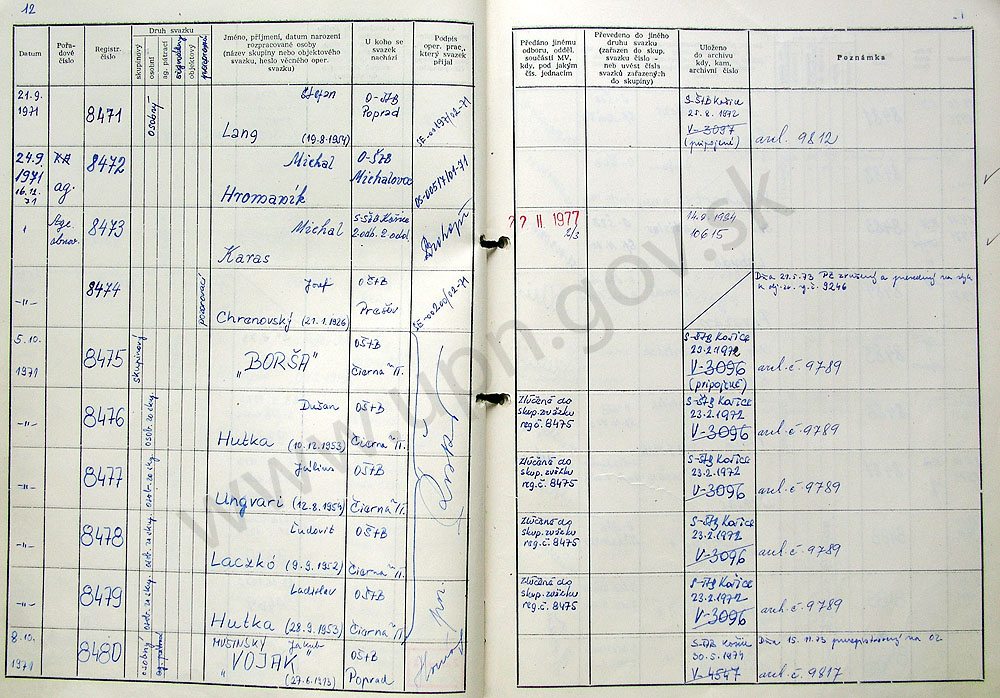 12
Datum
Pořa-
dové
číslo
Registr.
číslo
Druh svazku
skupinový
osobní
ag. pátrací
signální
objektový
pozorovací
Jméno, příjmení, datum narození
rozpracované osoby
(název skupiny nebo objektového
svazku, heslo věcného oper.
svazku)
U koho se
svazek
nachází
Podpis
oper. prac.,
který svazek
přijal
Předáno jinému
odboru, odděl.
součásti MV,
kdy, pod jakým
čís. jednacím
Převedeno do jiného
druhu svazku
(zařazen do skup.
svazku číslo -
neb uvést čísls
svazků zařazených
do skupiny)
Uloženo do
archivu
kdy, kam,
archivní číslo
Poznámka
21.9.
1971
8471
osobný
Štefan
Lang (19.8.1954)
O-ŠtB
Poprad
S-ŠtB Košice
25.8.1972
V-3097
(pripojené)
arch. 9812
24.9
1971
16.12.
71
ag.
8472
Michal
Hromaník
O-ŠtB
Michalovce
OS-00517/01-71
8473
Michal
Karas
S-ŠtB Košice
2.odb. 2.odd.
77 II 1977
2/3
14.9.1984
10615
-II-
8474
pozorovací
Jozef
Chrenovský (21.1.1926)
OŠtB
Prešov
Dňa 21.5.73 PZ zrušený a prevedený na
9246
5.10.
1971
8475
skupinový
„BORŠA"
OŠtB
Čierna n/T.
S-ŠtB Košice
23.2.1972
V-3096
(pripojené)
arch.č. 9789
-II-
8476
Dušan
Hutka (10.12.1953)
OŠtB
Čierna n/T.
Zlúčené do
skup. zväzku
reg.č. 8475
S-ŠtB Košice
23.2.1972
V-3096
arch.č. 9789
-II-
8477
Július
Ungvari (12.8.1954)
OŠtB
Čierna n/T.
Zlúčené do
skup. zväzku
reg.č. 8475
S-ŠtB Košice
23.2.1972
V-3096
arch.č. 9789
-II-
8478
Ľudovit
Laczkó (9.9.1952)
OŠtB
Čierna n/T.
Zlúčené do
skup. zväzku
reg.č. 8475
S-ŠtB Košice
23.2.1972
V-3096
arch.č. 9789
-II-
8479
Ladislav
Hutka (28.9.1953)
OŠtB
Čierna n/T.
Zlúčené do
skup. zväzku
reg.č. 8475
S-ŠtB Košice
23.2.1972
V-3096
arch.č. 9789
8.10.
1971
8480
osobný
MUŠINSKÝ Jakub
„VOJAK"
(27.6.1913)
OŠtB
Poprad
S-ŠtB Košice
30.5.1974
V-4547
Dňa 15.11.73 preregistrovaný na OZ
arch.č. 9817
www.upn.gov.sk